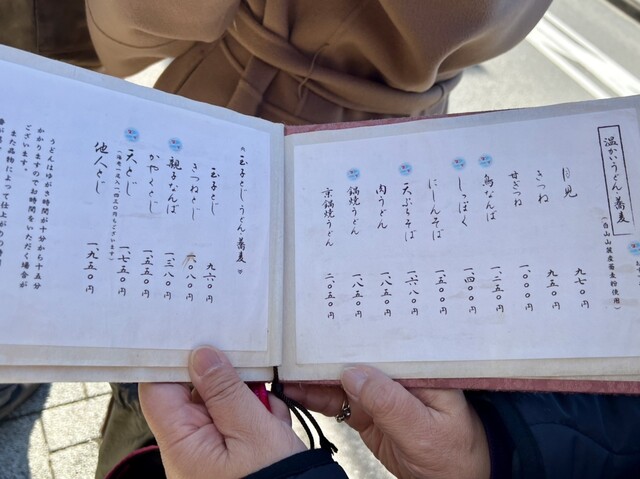 温かいうどん・蕎麦
(白山山麓産蕎麦粉使用)
月見 九七〇円
きつね 九五〇円
甘きつね 一〇〇〇円
鳥なんば 一二五〇円
しっぽく 一四〇〇円
にしんそば 一五〇〇円
天ぷらそば 一六八〇円
肉うどん 一八五〇円
鍋焼うどん 一八五〇円
京鍋焼うどん 二〇五〇円
玉子とじうどん・蕎麦
玉子とじ 九六〇円
きつねとじ 〇八〇円
親子なんば 一三八〇円
かやくとじ 一五五〇円
天とじ 一七五〇円
他人とじ 一九五〇円
うどんはゆがき時間が十分から十五分
かかりますのでお時間をいただく場合が
ございます。
また品物によって仕上がり